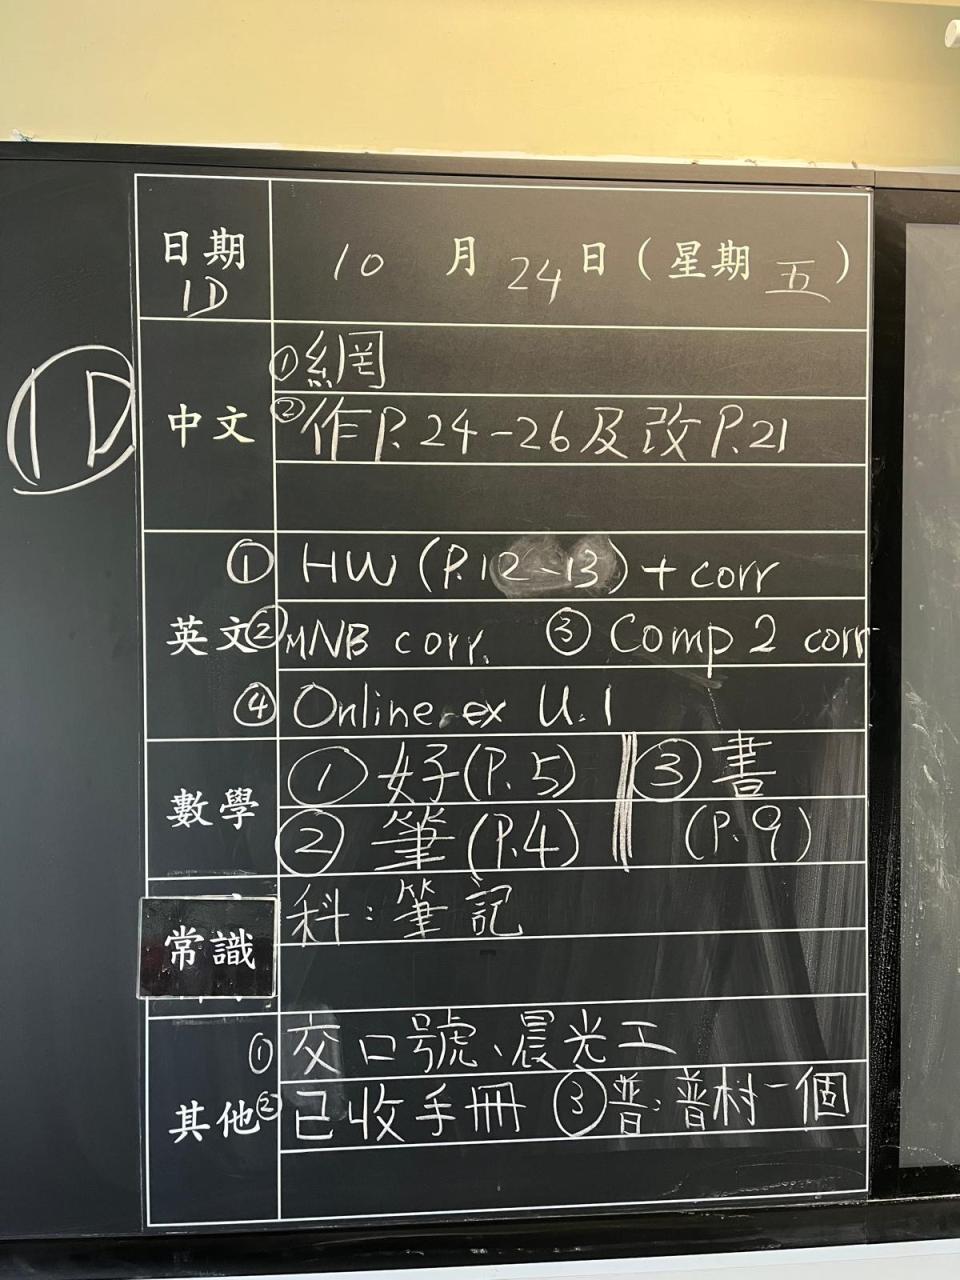 日期 10 月 24 日 ( 星期 五 )
1D
1D
① 網
中文 ② 作 P. 24-26 及改 P.21
① HW (P.12-13) + corr
英文 ② MNB corr. ③ Comp 2 corr
④ Online ex U.1
數學 ① 好 (P.5) ③ 書
② 筆 (P.4) (P.9)
常識 科：筆記
① 交口號、晨光工
其他 ② 已收手冊 ③ 普：普村一個